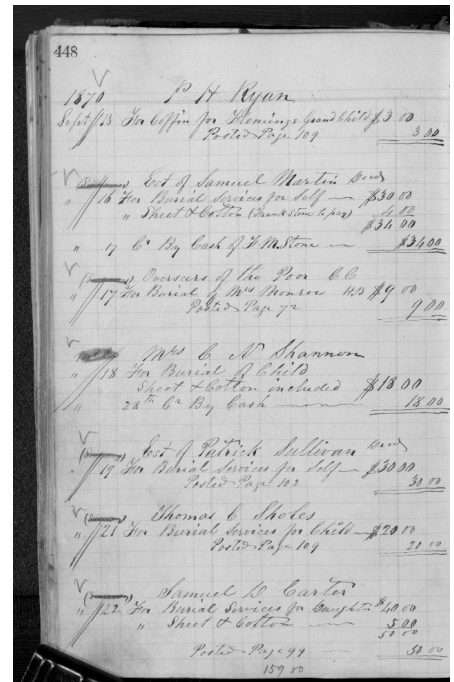 448
1870 P H Ryan
Sept 13 For Coffin for Flemings Grand Child $3 00
Posted Page 109 3 00
Est of Samuel Martin Decd
" 16 For Burial Services for Self $30 00
" Sheet & Cotton (Frank Stone to pay) 4 00
$34 00
" 17 Cr By Cash of F M Stone $34 00
Overseers of the Poor C C
" 17 For Burial of Mrs Monroe $9 00
Posted Page 72 9 00
Mrs C N Shannon
" 18 For Burial of Child
Sheet & Cotton included $18 00
" 28th Cr By Cash 18 00
Est of Patrick Sullivan Decd
" 19 For Burial Services for Self $30 00
Posted Page 102 30 00
Thomas C Sholes
" 21 For Burial Services for Child $20 00
Posted Page 109 00
Samuel S. Carter
" 22 For Burial Services for Daughter $40 00
" Sheet & Cotton 5 00
50 00
Posted Page 99 50 00
159 00